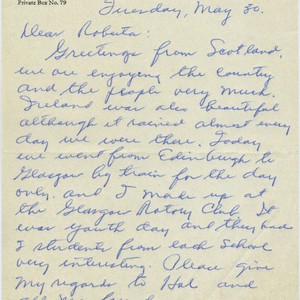 Private Box No. 79
Tuesday, May 30.
Dear Roberta:
Greetings from Scotland,
we are enjoying the country
and the people very much.
Ireland was also beautiful
although it rained almost every
day we were there. Today
we went from Edinburgh to
Glasgow by train for the day
only. and I made up at
the Glasgow Rotary Club. It
was youth day and they had
2 students from each school
very interesting. Please give
my regards to Hal and
all